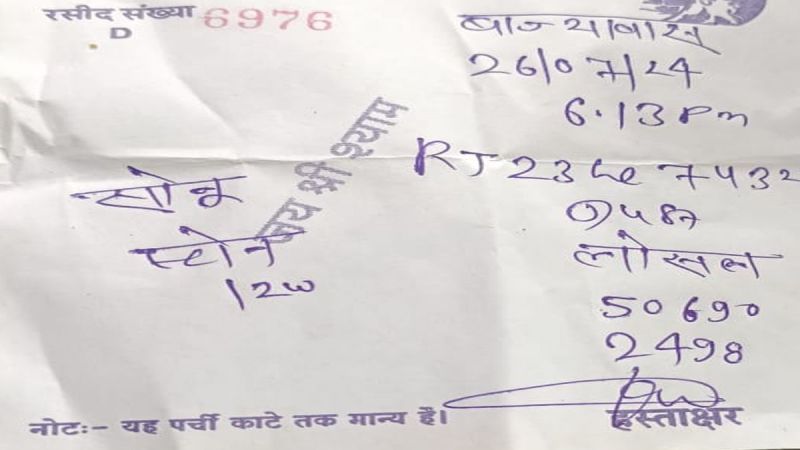 रसीद संख्या 6976
D
बाज्यावास
26/07/24
6.13 pm
जय श्री श्याम
RJ 23 7432
सोनू
स्टोन
12w
लोसल
50690
2498
नोटः- यह पर्ची काटे तक मान्य है।
हस्ताक्षर